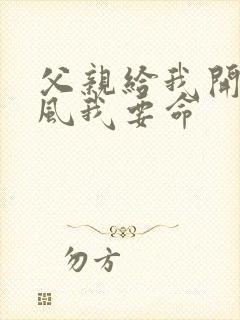 父親給我開
風我要命
勿方